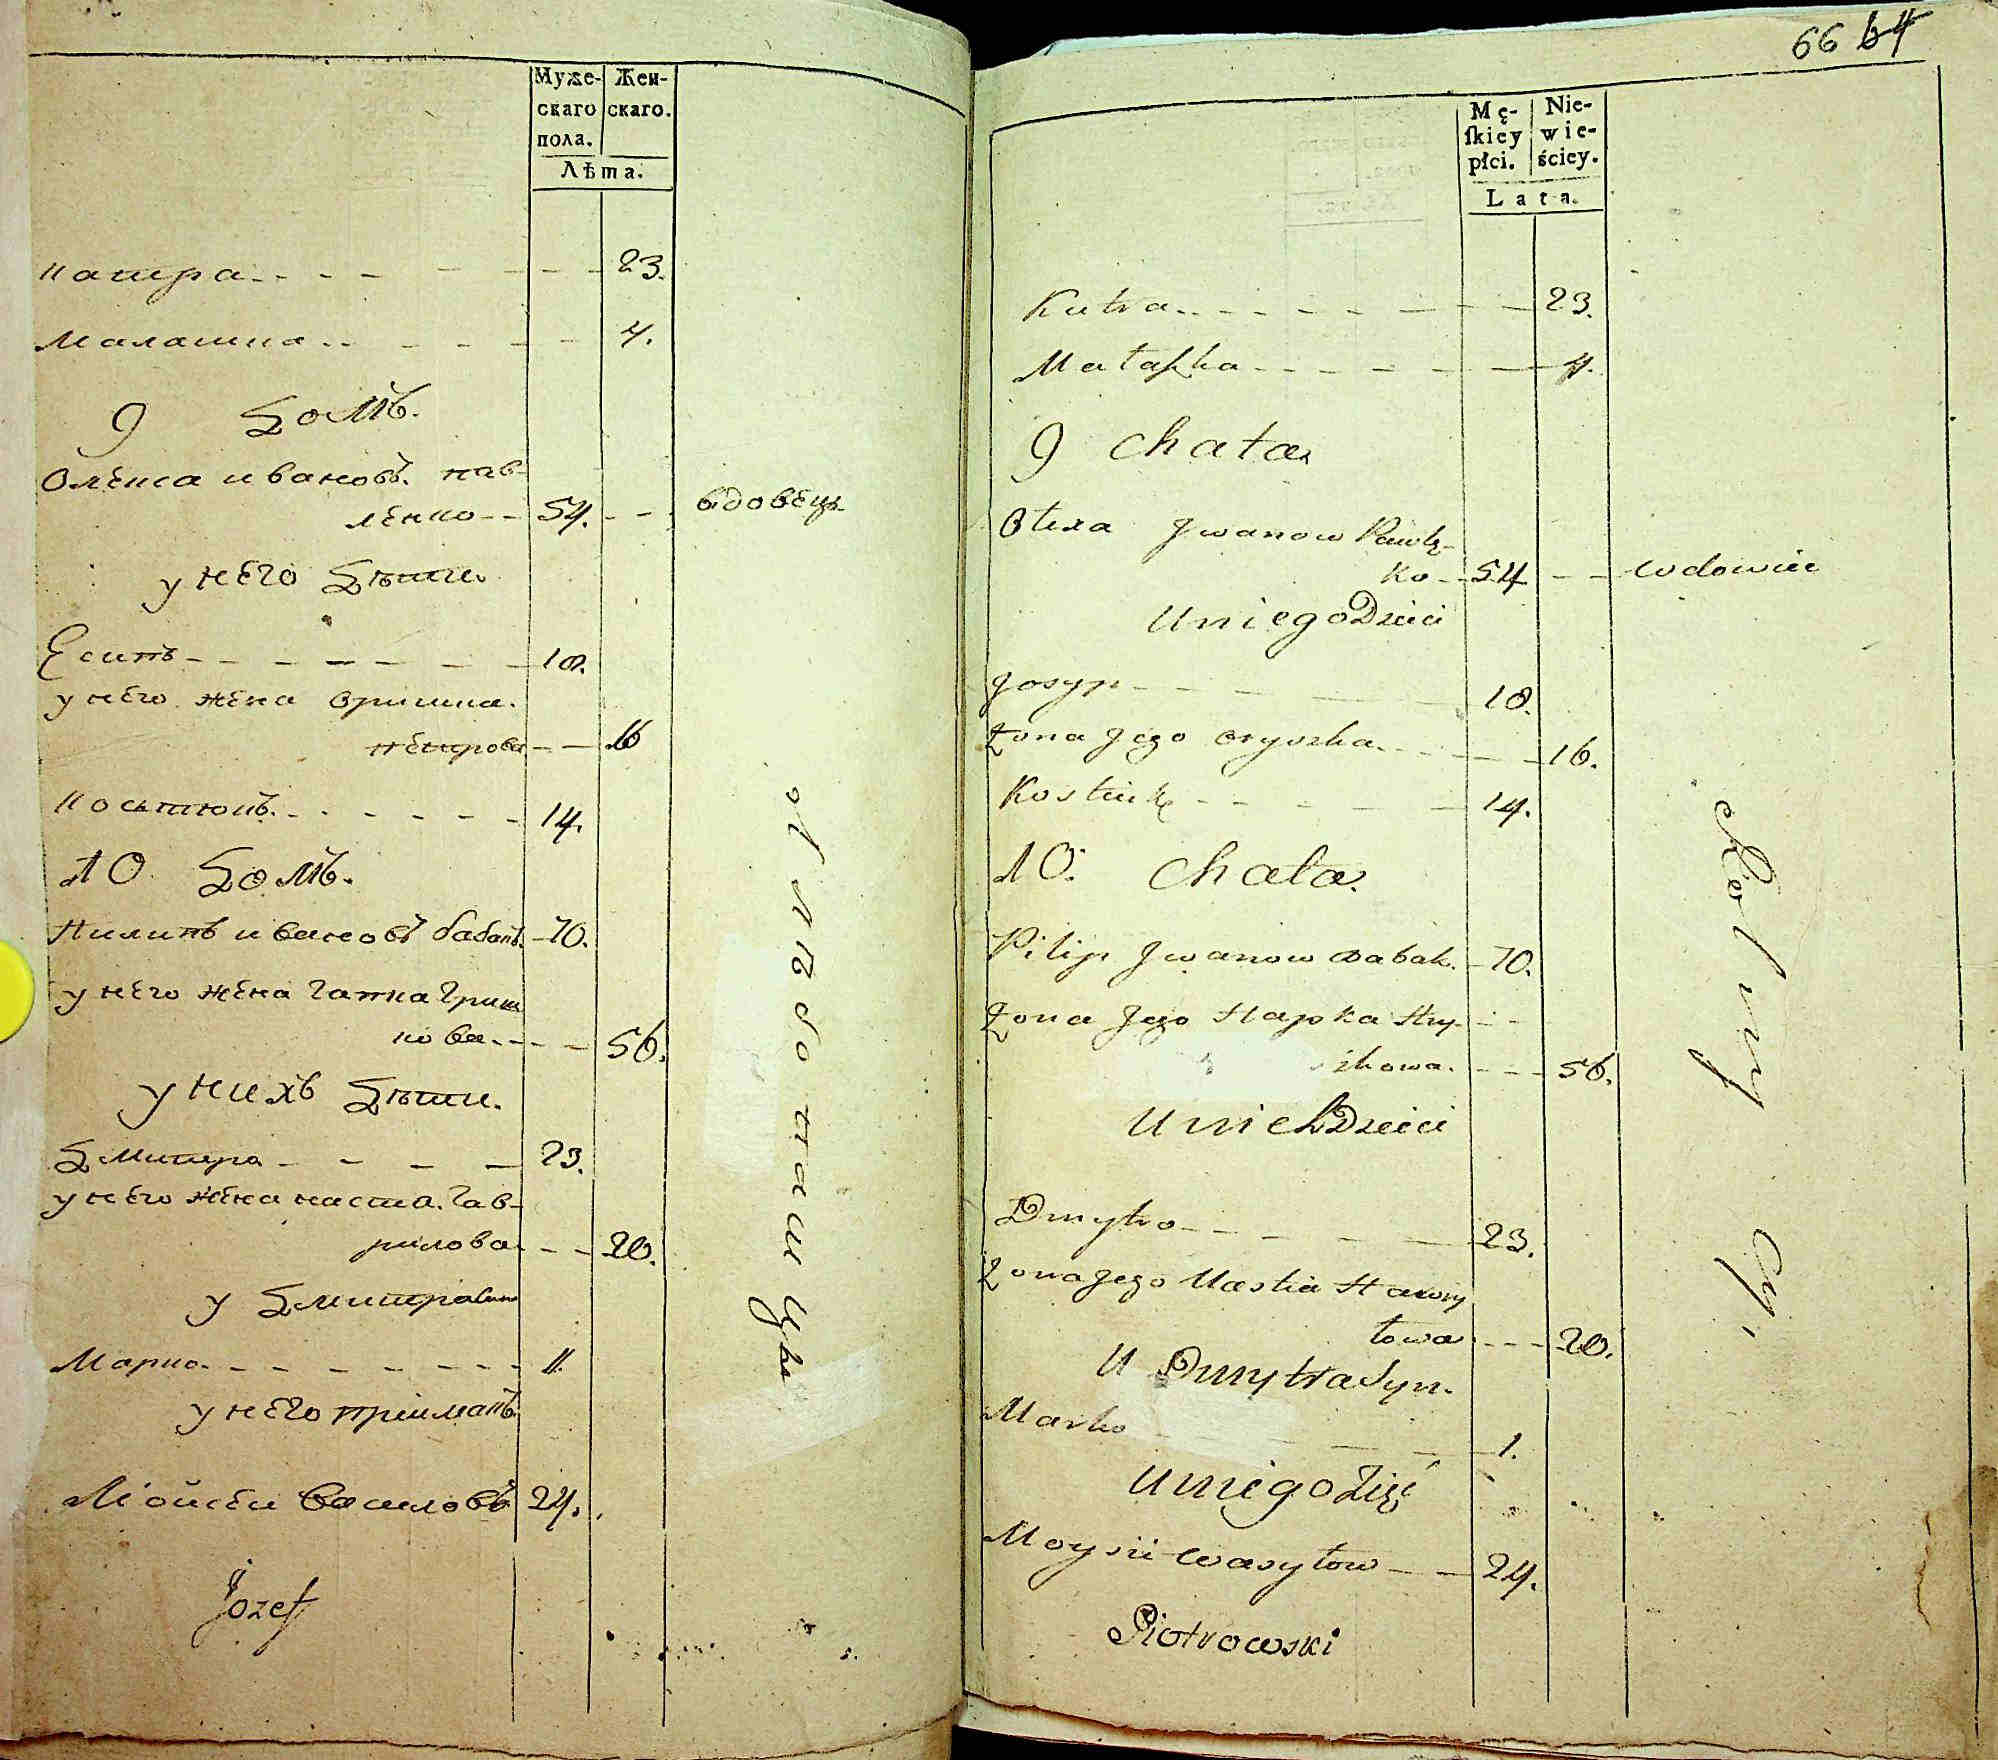 Муже-
скаго
пола.
Жен-
скаго.
Лѣта.
Катра 23.
Малашка 4.
9 домъ.
Олекса Ивановъ Пав-
ленко 54. вдовецъ
у него дѣти
Есипъ 18.
у него жена Оришка
Петрова 16
Косьтюкъ 14.
10 домъ.
Пилипъ Ивановъ Бабакъ 70.
у него жена Гапка Гриш
кова 56.
у нихъ дѣти.
Дмитро 23.
у него жена Настя Гав-
рилова 20.
у Дмитра
Марко 1.
у него приймакъ
Мойсеи Василовъ 24.
Józef
66 64
Mę-
ſkiey
płci.
Nie-
wie-
ściey.
Lata.
Katra 23.
Małaszka 4.
9 Chata
Ołexa Jwanow Pawłę-
ko 54 wdowiec
U niego Dzieci
Josyp 18.
Żona Jego Oryszka 16.
Kostiuk 14.
10. Chata.
Pilip Jwanow Babak 70.
Żona Jego Hapka Hry-
szkowa 56.
U nich Dzieci
Dmytro 23.
Żona Jego Nastia Hawry
łowa 20.
U Dmytra Syn.
Marko 1.
U niego Zięć
Moysii Wasyłow 24.
Piotrowski